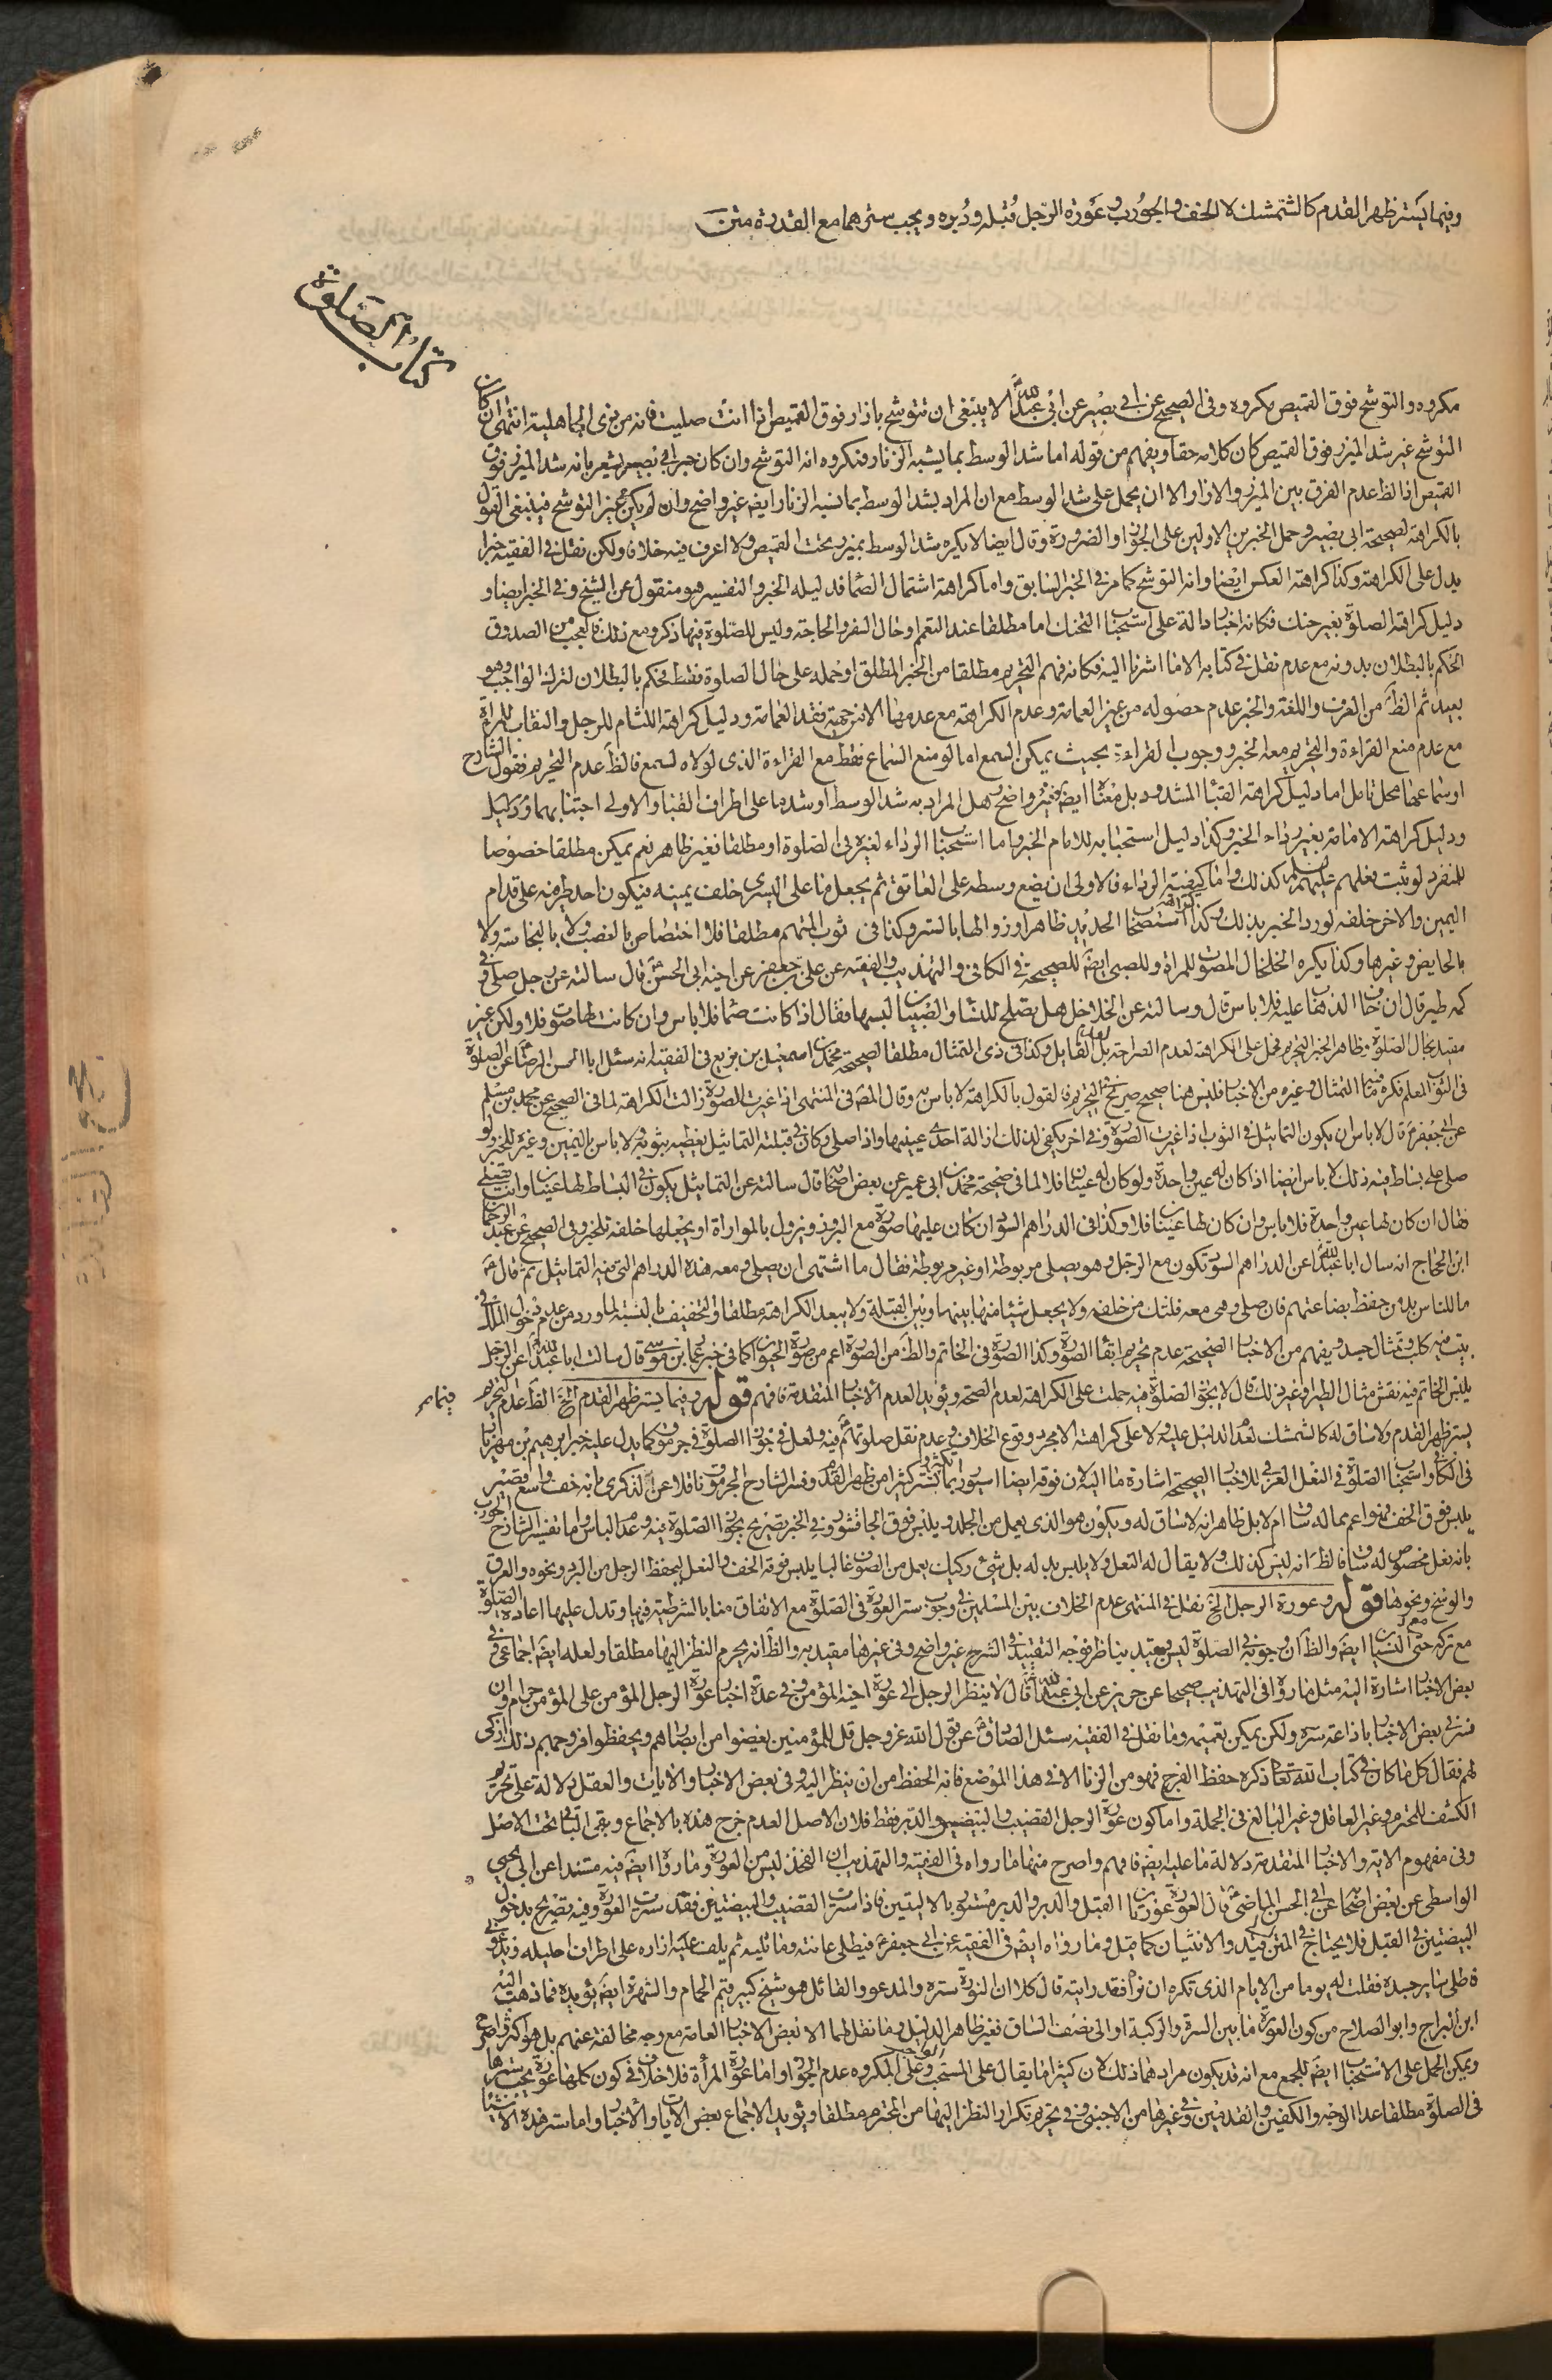 وفيما يستر ظهر القدم كالشمشك لا الخف والجورب وعورة الرجل قبله ودبره ويجب سترهما مع القدرة
كتاب الصلوة
مكروه والتوشح فوق القميص مكروه وفى الصحيح عن ابى بصير عن ابى عبد الله لا ينبغى ان تتوشح بازار فوق القميص اذا انت صليت فانه من زى الجاهلية انتهى ان كان
التوشح غير شد الميزر فوق القميص كان كلامه حقا ويفهم من قوله اما شد الوسط بما يشبه الزنار فمكروه انه التوشح وان كان خبر ابى بصير يشعر بانه شد الميزر فوق
القميص اذ الظ عدم الفرق بين الميزر والازار الا ان يحمل على شد الوسط مع ان المراد بشد الوسط بما يشبه الزنار ايض غير واضح وان لم يكن غير التوشح فينبغى القول
بالكراهة لصحيحة ابى بصير وحمل الخبرين الاولين على الجواز او الضرورة وقال ايضا لا يكره شد الوسط بميزر تحت القميص ولا اعرف فيه خلافا ولكن نقل فى الفقيه خبرا
يدل على الكراهة وكذا كراهة العكس ايضا وانه التوشح كما مر فى الخبر السابق واما كراهة اشتمال الصما فدليله الخبر والتفسير هو منقول عن الشيخ وفى الخبر ايضا و
دليل كراهة الصلوة بغير حنك فكانه اخبار دالة على استحباب التحنك اما مطلقا عند التعمم او حال السفر والحاجة وليس للصلوة فيها ذكر ومع ذلك فالعجب من الصدوق
الحكم بالبطلان بدونه مع عدم نقل فى كتابه الا ما اشرنا اليه فكانه فهم التحريم مطلقا من الخبر المطلق او حمله على حال الصلوة فقط فحكم بالبطلان لترك الواجب وهو
بعيد ثم الظ من العرف واللغة والخبر عدم حصوله من غير العمامة وعدم الكراهة مع عدمها الا من جهة فقد العمامة ودليل كراهة اللثام للرجل والنقاب للمراة
مع عدم منع القراءة والتحريم معه الخبر ووجوب القراءة بحيث يمكن السمع اما لو منع السماع فقط مع القراءة الذى لولاه لسمع فالظ عدم التحريم فقول الشارح
او سماعها محل تامل اما دليل كراهة القباء المشدود بل معناه ايض فغير واضح هل المراد به شد الوسط او شدها على اطراف القباء والاولى اجتنابهما
ودليل كراهة الامامة بغير رداء الخبر وكذا دليل استحبابه للامام الخبر واما استحباب الرداء لغيره فى الصلوة او مطلقا فغير ظاهر نعم يمكن مطلقا خصوصا
للمنفرد لو ثبت فعلهم عليهم السلم كذلك واما كيفية الرداء فالاولى ان يضع وسطه على العاتق ثم يجعل ما على اليسرى خلف يمينه فيكون احد طرفيه على قدام
اليمين والاخر خلفه لورود الخبر بذلك وكذا استصحاب الحديد ظاهرا وزوالها بالستر وكذا فى ثوب المتهم مطلقا فلا اختصاص بالغصب ولا بالنجاسة ولا
بالحايض وغيرها وكذا يكره الخلخال المصوت للمراة وللصبى ايض للصحيحة فى الكافى والتهذيب والفقيه عن على بن جعفر عن اخيه ابى الحسن قال سالته عن رجل صلى وفى
كمه طير قال ان خاف الذهاب عليه فلا باس قال وسالته عن الخلاخل هل يصلح للنساء والصبيان لبسها فقال اذا كانت صما فلا باس وان كانت لها صوت فلا ولكن غير
مقيد بحال الصلوة وظاهر الخبر التحريم فحمل على الكراهة لعدم الصراحة بل لعدم القايل وكذا فى ذى التمثال مطلقا لصحيحة محمد بن اسمعيل بن بزيع فى الفقيه انه سئل ابا الحسن الرضا عن الصلوة
فى الثوب المعلم فكره ما فيه التمثال وغيره من الاخبار فليس هنا صحيح صريح فى التحريم فالقول بالكراهة لا باس به وقال المص فى المنتهى اذا غيرت الصورة زالت الكراهة لما فى الصحيح عن محمد بن مسلم
عن ابى جعفر قال لا باس ان يكون التماثيل فى الثوب اذا غيرت الصورة وفى اخر يكفى لذلك ازالة احدى عينيها واذا صلى وكان فى قبلته التماثيل يغطيه بثوب ولا باس باليمين وغيره للخبر ولو
صلى على بساط فيه ذلك لا باس ايضا اذا كان له عين واحدة ولو كان له عينان فلا لما فى صحيحة محمد بن ابى عمير عن بعض اصحابه قال سالته عن التماثيل يكون فى البساط لها عينان وانت تصلى
فقال ان كان لها عين واحدة فلا باس وان كان لها عينان فلا وكذا فى الدراهم السود ان كان عليها صورة مع البروز ويزول بالمواراة او يجعلها خلفه للخبر وفى الصحيح عن عبد الرحمن
ابن الحجاج انه سال ابا عبد الله عن الدراهم السود تكون مع الرجل وهو يصلى مربوطة او غير مربوطة فقال ما اشتهى ان يصلى ومعه هذه الدراهم التى فيه التماثيل ثم قال
ما للناس بد من حفظ بضاعتهم فان صلى وهى معه فلتكن من خلفه ولا يجعل شيئا منها بينها وبين القبلة ولا يبعد الكراهة مطلقا والتخفيف بالنسبة لما ورد من عدم دخول الملك فى
بيت فيه كلب وتمثال جسد ويفهم من الاخبار الصحيحة عدم تحريم ابقاء الصورة وكذا الصورة فى الخاتم والظ من الصورة اعم من صورة الحيوان كما فى خبر عمار بن موسى قال سالت ابا عبد الله عن الرجل
يلبس الخاتم فيه نقش مثال الطير او غير ذلك قال لا يجوز الصلوة فيه حملت على الكراهة لعدم الصحة ويؤيد العدم الاخبار المتقدمة فافهم قوله وفيما يستر ظهر القدم الخ الظ عدم تحريم
يستر ظهر القدم ولا ساق له كالشمشك لعدم الدليل عليه ولا على كراهته الا مجرد وقوع الخلاف وعدم نقل صلوتهم فيه ولعل فى جواز الصلوة فى جرموق كما يدل عليه خبر ابرهيم بن مهزيار
فى الكافى واستحباب الصلوة فى النعل العربى للاخبار الصحيحة اشارة ما اليه لان فوقه ايضا سيور بما تستر كثيرا من ظهر القدم وفسر الشارح الجرموق ناقلا عن الذكرى بانه خف واسع قصير
يلبس فوق الخف فهو اعم مما له ساق ام لا بل ظاهر انه لا ساق له ويكون هو الذى يعمل من الجلد ويلبس فوق الجاقشور وفى الخبر تصريح بجواز الصلوة فيه وعدم الباس واما تفسير الشارح الجورب
بانه نعل مخصوص له ساق فالظ انه ليس كذلك ولا يقال له النعل ولا يلبس بدله بل شئ ركيك يعمل من الصوف غالبا يلبس فوقه الخف والنعل ليحفظ الرجل من البرد ونحوه والعرق
والوسخ ونحوها قوله وعورة الرجل الخ نقل فى المنتهى عدم الخلاف بين المسلمين فى وجوب ستر العورة فى الصلوة مع الاتفاق منا بالشرطية فيها وتدل عليها اعادة الصلوة
مع تركه حتى النسيان ايض والظ ان وجوبه فى الصلوة ليس بمقيد بناظر فوجه التقييد فى الشرح غير واضح وفى غيرها مقيد به والظ انه يحرم النظر اليها مطلقا ولعله ايض اجماعى فى
بعض الاخبار اشارة اليه مثل ما رواه فى التهذيب صحيحا عن حريز عن ابى عبد الله قال لا ينظر الرجل الى عورة اخيه المؤمن وفى عدة اخبار عورة الرجل المؤمن على المؤمن حرام وان
فسر فى بعض الاخبار باذاعة سره ولكن يمكن تعميمه وما نقل فى الفقيه سئل الصادق عن قول الله عز وجل قل للمؤمنين يغضوا من ابصارهم ويحفظوا فروجهم ذلك ازكى
لهم فقال كل ما كان فى كتاب الله تعالى ذكره حفظ الفرج فهو من الزنا الا فى هذا الموضع فانه الحفظ من ان ينظر اليه وفى بعض الاخبار والايات والعقل دلالة على تحريم
الكشف للمحترم وغير العاقل وغير البالغ فى الجملة واما كون عورة الرجل القضيب والبيضتين والدبر فقط فلان الاصل العدم خرج هذه بالاجماع وبقى الباقى تحت الاصل
وفى مفهوم الاية والاخبار المتقدمة دلالة ما عليه ايض فافهم واصرح منها ما رواه فى الفقيه والتهذيب ان الفخذ ليس من العورة وما رواه ايض فيه مسندا عن ابى يحيى
الواسطى عن بعض اصحابه عن ابى الحسن الماضى قال العورة عورتان القبل والدبر والدبر مستور بالاليتين فاذا سترت القضيب والبيضتين فقد سترت العورة وفيه تصريح بدخول
البيضتين فى القبل فلا يحتاج فى المتن الى قيد والانثيان كما قيل وما رواه ايض فى الفقيه عن ابى جعفر فيطلى عانته وما يليه ثم يلف عليه ازاره على اطراف احليله ويدعونى
فاطلى ساير جسده فقلت له يوما من الايام الذى تكره ان نراه فقد رايته قال كلا ان النورة ستره والمدعو والقائل هو شيخ كبير قيم الحمام والشهرة ايض يؤيده فما ذهب اليه
ابن البراج وابو الصلاح من كون العورة ما بين السرة والركبة او الى نصف الساق فغير ظاهر الدليل وما نقل لهما الا بعض الاخبار العامة مع وجه مخالفة عنهم بل هو اكثر واصرح
ويمكن الحمل على الاستحباب ايض للجمع مع انه قد يكون مرادهما ذلك لان كثيرا ما يقال على المستحب وعلى المكروه عدم الجواز واما عورة المرأة فلا خلاف فى كون كلها عورة يجب سترها
فى الصلوة مطلقا عدا الوجه والكفين والقدمين وفى غيرها من الاجنبى وفى تحريم تكرار النظر اليها من المحترم مطلقا ويؤيد الاجماع بعض الايات والاخبار واما ستر هذه الاشياء